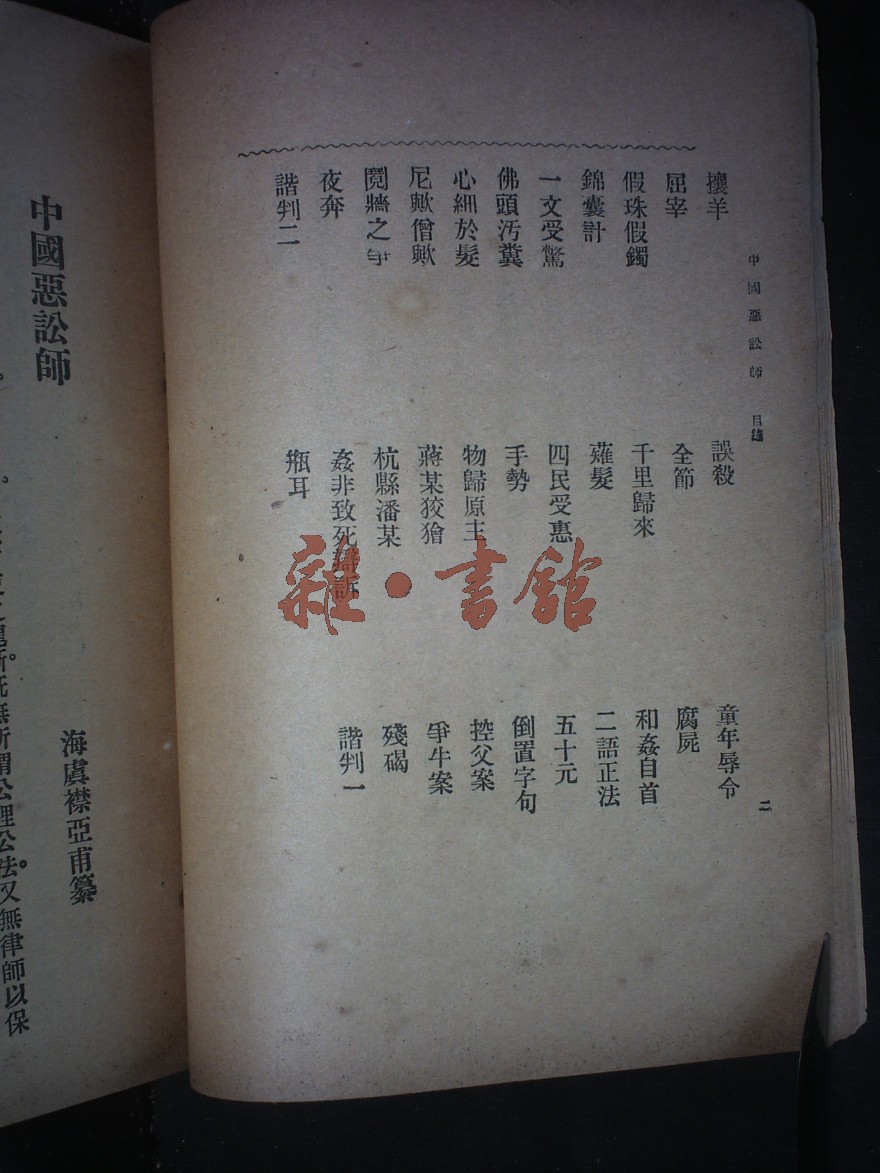 中國惡訟師 目錄
二
攘羊
誤殺
童年辱令
屈宰
全節
腐屍
假珠假鐲
千里歸來
和姦自首
錦囊計
薙髮
二語正法
一文受驚
四民受惠
五十元
佛頭汚糞
手勢
倒置字句
心細於髮
物歸原主
控父案
尼歟僧歟
蔣某狡獪
爭牛案
鬩牆之爭
杭縣潘某
殘碣
夜奔
姦非致死辯訴
諧判一
諧判二
瓶耳
雜·書館
中國惡訟師
海虞襟亞甫纂
無所謂公理公法。又無律師以保